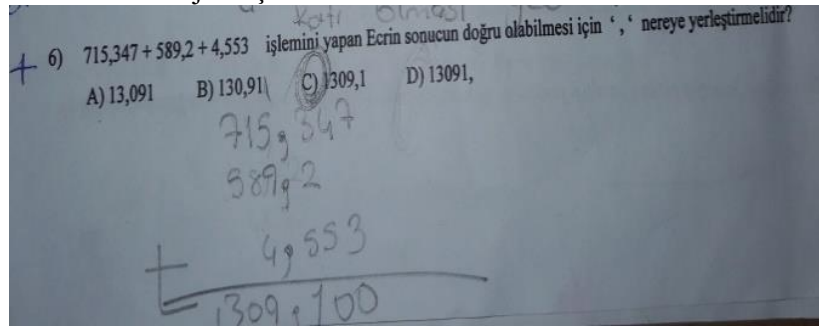 Katı olması
+ 6) 715,347 + 589,2 + 4,553 işlemini yapan Ecrin sonucun doğru olabilmesi için ‘ , ‘ nereye yerleştirmelidir?
A) 13,091 B) 130,91 C) 1309,1 D) 13091,
715,347
589,2
+ 4,553
1309,100